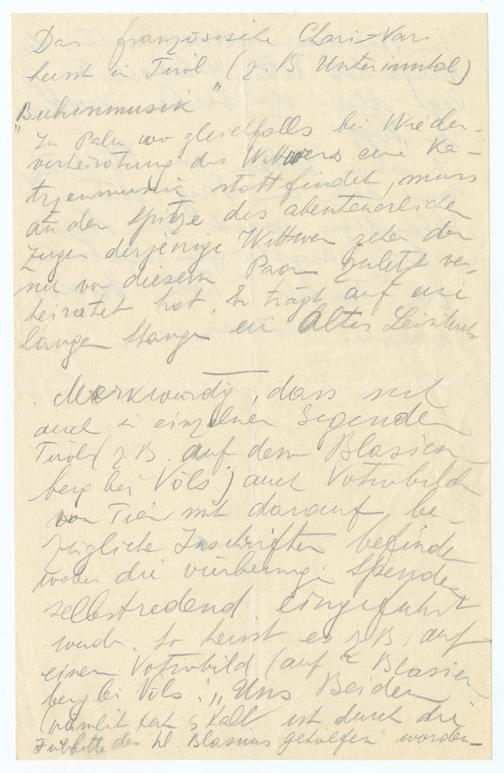 Das französische Chari-Vari
heisst in Tirol (z. B Unterinntal)
"Buhinmusik"
In Palu wo gleichfalls bei Wieder-
verheiratung des Wittwers eine Ka-
tzenmusik stattfindet, muss
an der Spitze des abenteuerlichen
Zuges derjenige Wittwer gehen der
nie vor diesem Paar zuletzt ver-
heiratet hat. Er trägt auf einer
langen Stange ein Altes Leintuch
Merkwürdig, dass sich
auch in einzelnen Gegenden
Tirols (z. B. auf dem Blasien
berg bei Völs) auch Votivbilder
von Tieren mit darauf be-
zügliche Inschriften befinden
wobei die vierbeinige Spender
selbstredend eingeführt
werden. So heisst es z. B. auf
einem Votivbild (auf Blasien
berg bei Völs: "Uns Beiden
ist durch die
Fürbitte des hl. Blasius geholfen worden